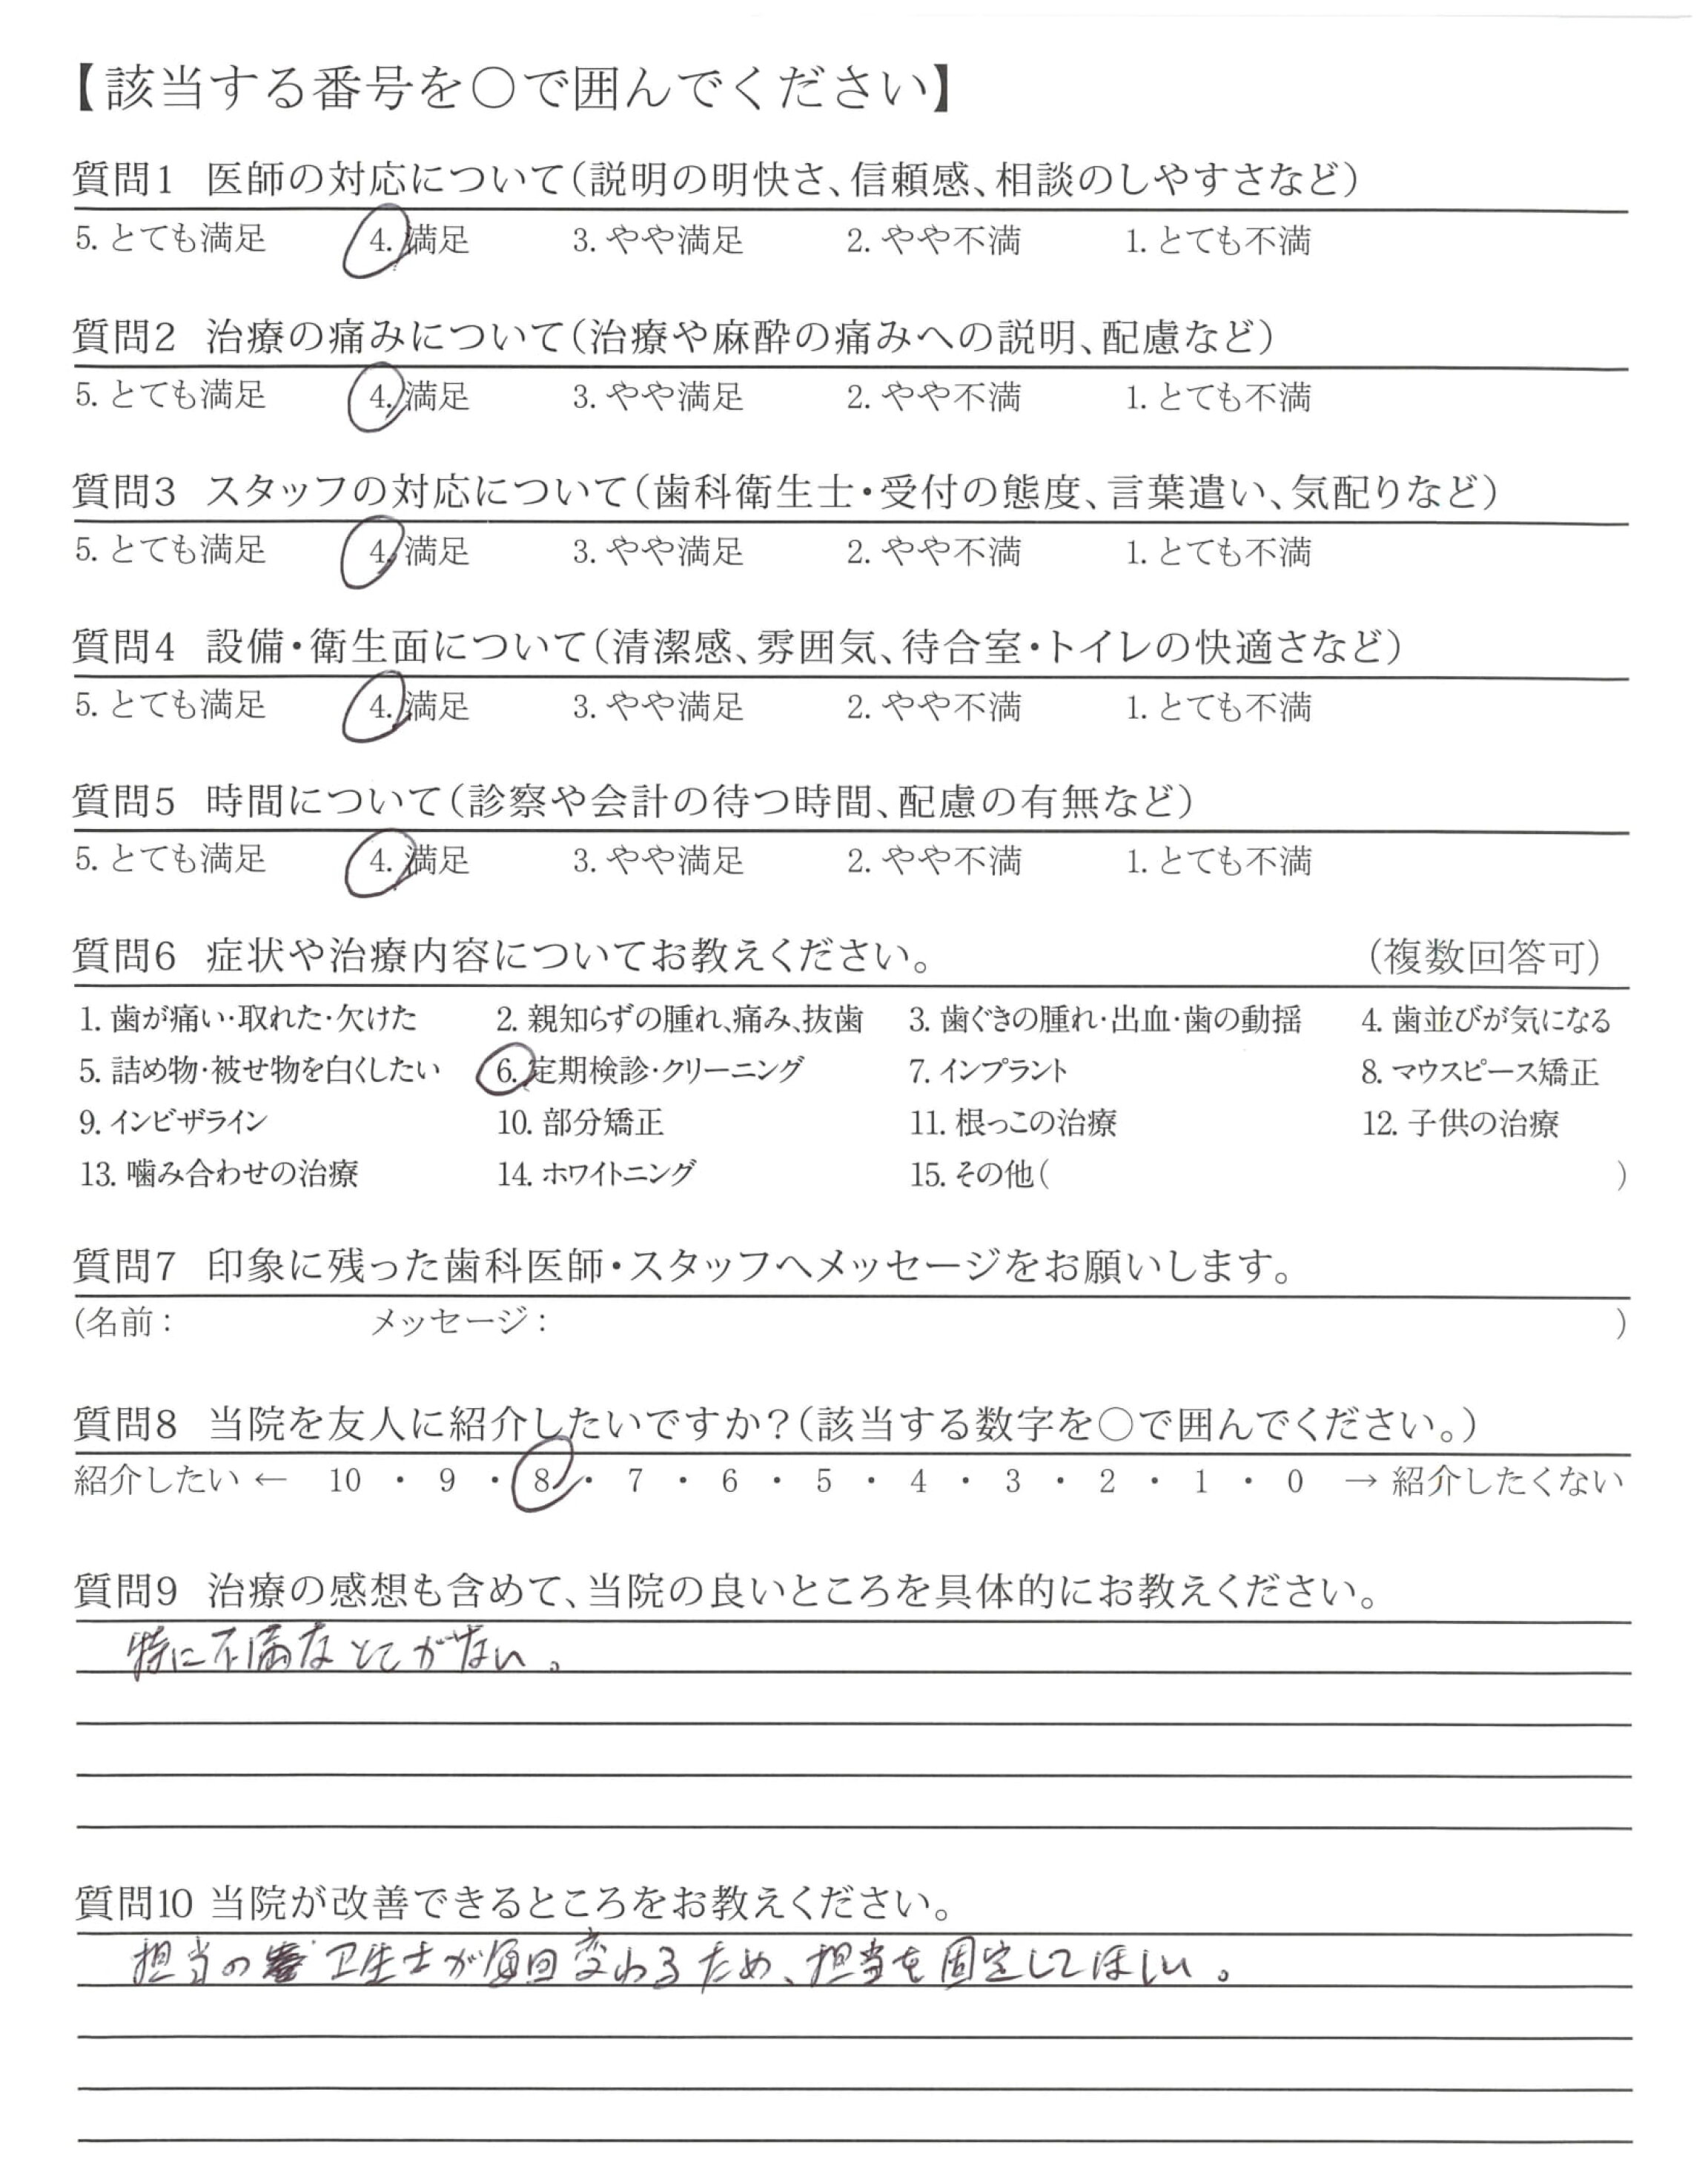 【該当する番号を○で囲んでください】
質問1 医師の対応について(説明の明快さ、信頼感、相談のしやすさなど)
5. とても満足 4. 満足 3. やや満足 2. やや不満 1. とても不満
質問2 治療の痛みについて(治療や麻酔の痛みへの説明、配慮など)
5. とても満足 4. 満足 3. やや満足 2. やや不満 1. とても不満
質問3 スタッフの対応について(歯科衛生士・受付の態度、言葉遣い、気配りなど)
5. とても満足 4. 満足 3. やや満足 2. やや不満 1. とても不満
質問4 設備・衛生面について(清潔感、雰囲気、待合室・トイレの快適さなど)
5. とても満足 4. 満足 3. やや満足 2. やや不満 1. とても不満
質問5 時間について(診察や会計の待つ時間、配慮の有無など)
5. とても満足 4. 満足 3. やや満足 2. やや不満 1. とても不満
質問6 症状や治療内容についてお教えください。 (複数回答可)
1. 歯が痛い・取れた・欠けた 2. 親知らずの腫れ、痛み、抜歯 3. 歯ぐきの腫れ・出血・歯の動揺 4. 歯並びが気になる
5. 詰め物・被せ物を白くしたい 6. 定期検診・クリーニング 7. インプラント 8. マウスピース矯正
9. インビザライン 10. 部分矯正 11. 根っこの治療 12. 子供の治療
13. 噛み合わせの治療 14. ホワイトニング 15. その他( )
質問7 印象に残った歯科医師・スタッフへメッセージをお願いします。
(名前: メッセージ: )
質問8 当院を友人に紹介したいですか?(該当する数字を○で囲んでください。)
紹介したい ← 10 ・ 9 ・ 8 ・ 7 ・ 6 ・ 5 ・ 4 ・ 3 ・ 2 ・ 1 ・ 0 → 紹介したくない
質問9 治療の感想も含めて、当院の良いところを具体的にお教えください。
特に不満なとこがない。
質問10 当院が改善できるところをお教えください。
担当の卫生士が毎回変わるため、担当を固定してほしい。